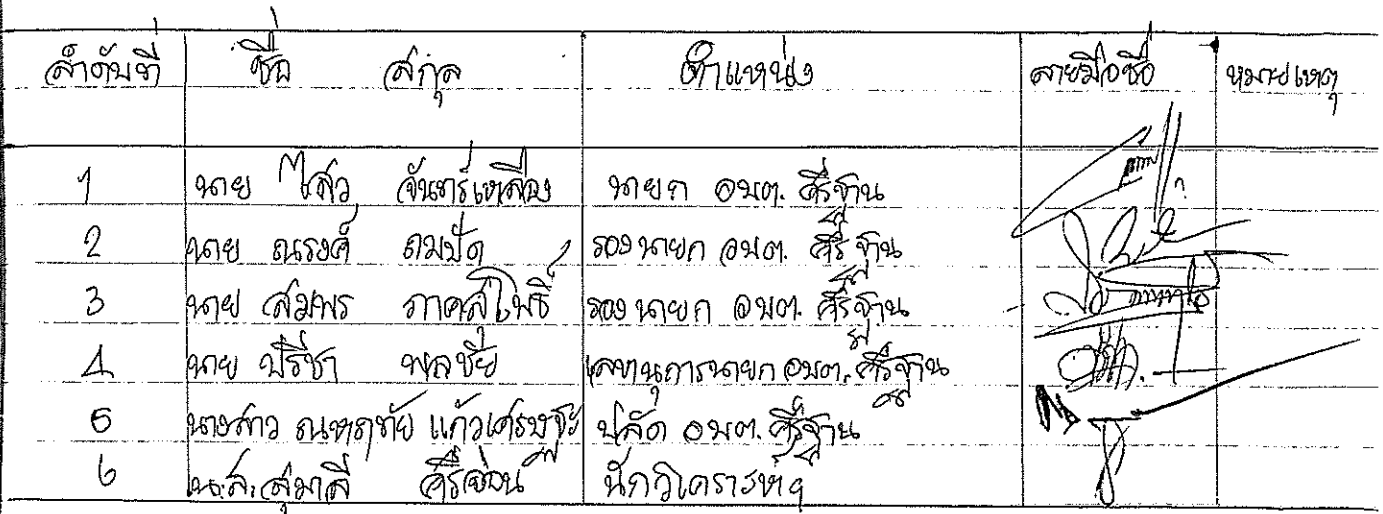 ลำดับที่ ชื่อ สกุล ตำแหน่ง ลายมือชื่อ หมายเหตุ
1 นาย ไสว จันทร์เหลือง นายก อบต. ศรีฐาน
2 นาย ณรงค์ ถมปัด รองนายก อบต. ศรีฐาน
3 นาย สมพร ภาคสุโพธิ์ รองนายก อบต. ศรีฐาน
4 นาย ปรีชา พลชัย เลขานุการนายก อบต. ศรีฐาน
5 นางสาว ณหฤทัย แก้วเศรษฐะ ปลัด อบต. ศรีฐาน
6 น.ส. สุมาลี ศรีอ่อน นักวิเคราะห์ฯ